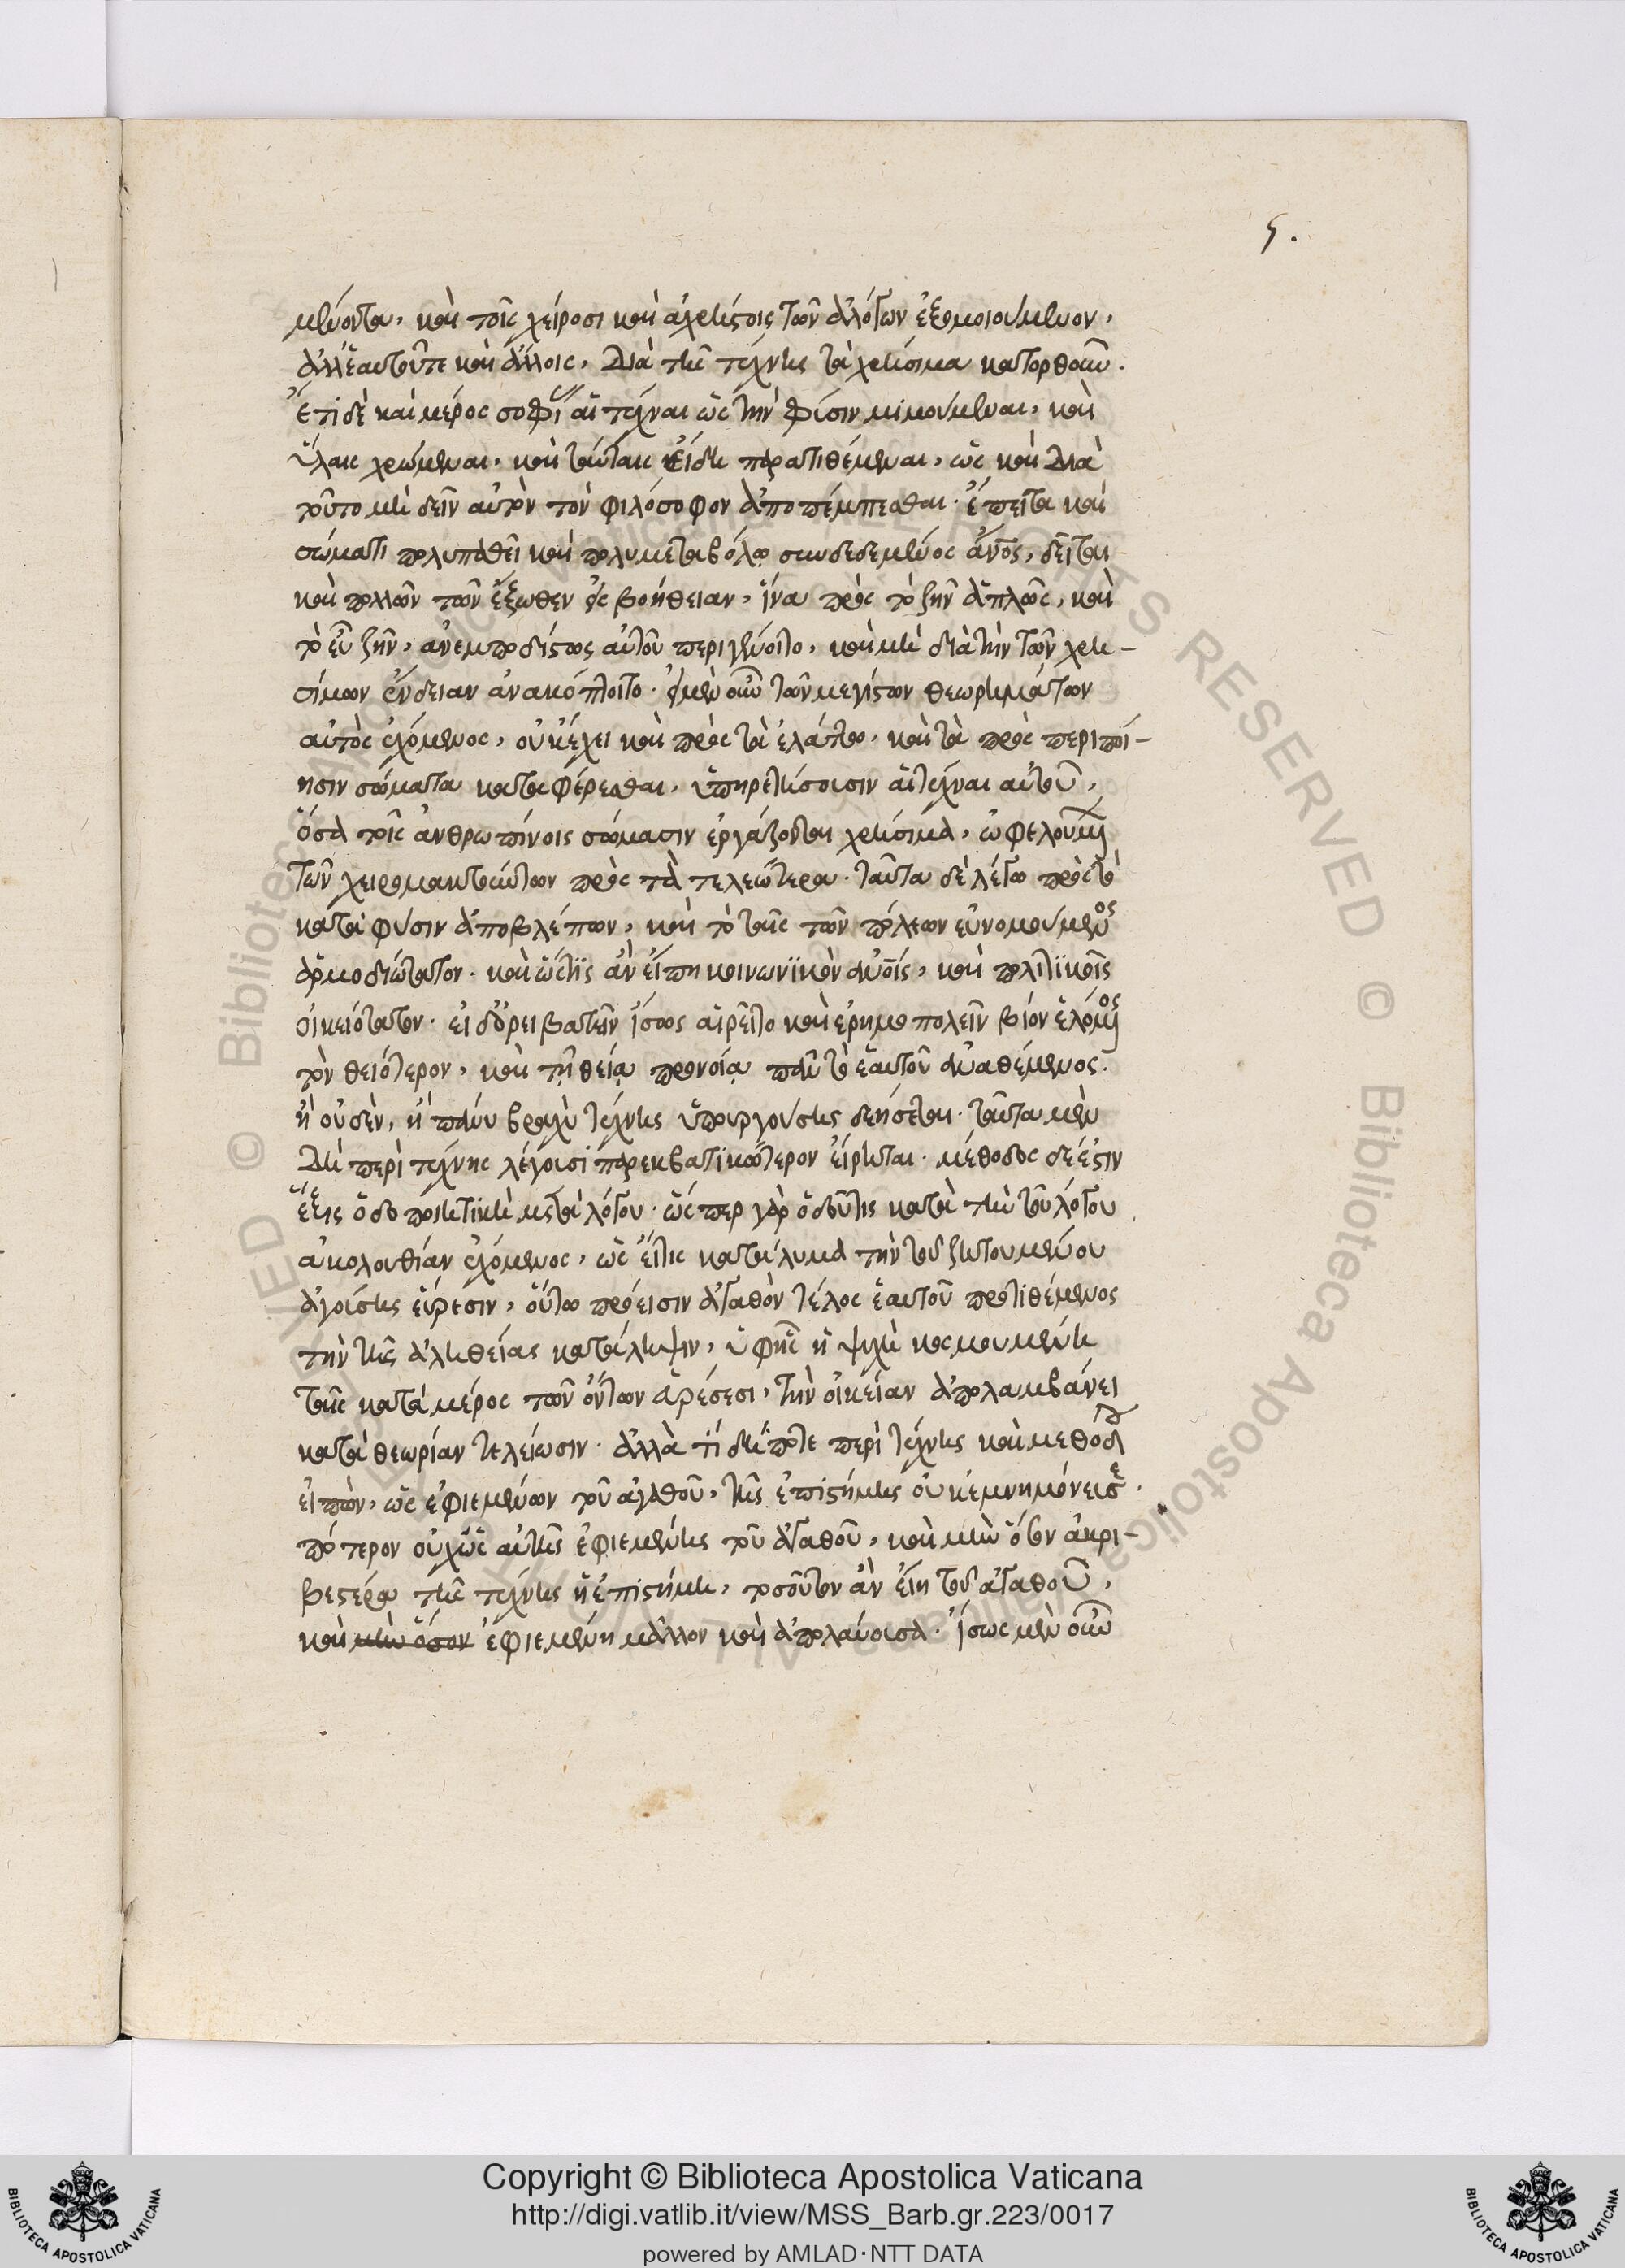 5.
μένοντα, καὶ τοῖς χείροσι καὶ ἀχρήστοις τῶν ἀλόγων ἐξομοιούμενον,
ἀλλ' ἑαυτοῦτε καὶ ἄλλοις, διὰ τῆς τέχνης τὰ χρήσιμα κατορθοῦν.
Ἔτι δὲ καὶ μέρος σοφί αἱ τέχναι ὡς τὴν φύσιν μιμούμεναι, καὶ
ὕλαις χρώμεναι, καὶ ταύταις εἴδη περατιθέμεναι, ὡς καὶ διὰ
τοῦτο μὴ δεῖν αὐτὸν τὸν φιλόσοφον ἀποπέμπεσθαι. ἔπειτα καὶ
σώματι πολυπαθεῖ καὶ πολυμεταβόλῳ συνδεδεμένος ἄνος, δεῖται
καὶ πολλῶν τῶν ἔξωθεν εἰς βοήθειαν, ἵνα πρὸς τὸ ζῆν ἁπλῶς, καὶ
τὸ εὖ ζῆν, ἀνεμποδίστως αὐτοῦ περιγένοιτο, καὶ μὴ διὰ τὴν τῶν χρη-
σίμων ἔνδειαν ἀνακόπτοιτο. εἰ μὲν οὖν τῶν μεγίστων θεωρημάτων
αὐτὸς ἐχόμενος, οὐκ ἔχει καὶ πρὸς τὰ ἐλάττω, καὶ τὰ πρὸς περιποί-
ησιν σώματα καταφέρεσθαι, ὑπηρετήσουσιν αἱ τέχναι αὐτοῦ,
ὅσα τοῖς ἀνθρωπίνοις σώμασιν ἐργάζονται χρήσιμα, ὠφελουμ
τῶν χειρομακτοτάτων πρὸς τὰ τελεώτερα. ταῦτα δὲ λέγω πρὸς τὸ
κατὰ φύσιν ἀποβλέπων, καὶ τὸ ταῖς τῶν πόλεων εὐνομουμένος
ἁρμοδιώτατον. καὶ ὥς τις ἂν εἴπη κοινωνικὸν αὐτοῖς, καὶ πολιτικοῖς
οἰκειότατον. εἰ δ' ὀρειβατεῖν ἴσως αἱρεῖτο καὶ ἐρημοπολεῖν βίον ἑλόμος
τὸν θειότερον, καὶ τῇ θείᾳ προνοίᾳ πᾶν τὸ ἑαυτοῦ ἀναθέμενος.
ἢ οὐδὲν, ἢ πάνυ βραχὺ τέχνης ὑπουργούσης δεήσεται. ταῦτα μὲν
δὴ περὶ τέχνης λέγουσι παρεκβατικώτερον εἴρηται. μέθοδος δέ ἐστιν
ἕξις ὁδοποιητικὴ μετὰ λόγου. ὥσπερ γὰρ ὁδοῦ τις κατὰ τὴν τοῦ λόγου
ἀκολουθίαν ἐχόμενος, ὡς εἴ τις κατάλυμα τὴν τοῦ ζητουμένου
ἀγούσης εὕρεσιν, οὕτω πρόεισιν ἀγαθὸν τέλος ἑαυτοῦ προτιθέμενος
τὴν τῆς ἀληθείας κατάληψιν, ὑφ' ἧς ἡ ψυχὴ κοσμουμένη
ταῖς κατὰ μέρος τῶν ὄντων αἱρέσεσι, τὴν οἰκείαν ἀπολαμβάνει
κατὰ θεωρίαν τελείωσιν. ἀλλὰ τί δήποτε περὶ τέχνης καὶ μεθόδ
εἰπὼν, ὡς ἐφιεμένων τοῦ ἀγαθοῦ, τῆς ἐπιστήμης οὐκ ἐμνημόνευσε.
πότερον οὐχ ὡς αὐτῆς ἐφιεμένης τοῦ ἀγαθοῦ, καὶ μὴν ὅσον ἀκρι-
βεστέρα τῆς τέχνης ἡ ἐπιστήμη, τοσοῦτον ἂν εἴη τοῦ ἀγαθοῦ,
καὶ μὴν ὅσον ἐφιεμένη μᾶλλον καὶ ἀπολαύουσα. ἴσως μὲν οὖν
Copyright © Biblioteca Apostolica Vaticana
http://digi.vatlib.it/view/MSS_Barb.gr.223/0017
powered by AMLAD·NTT DATA